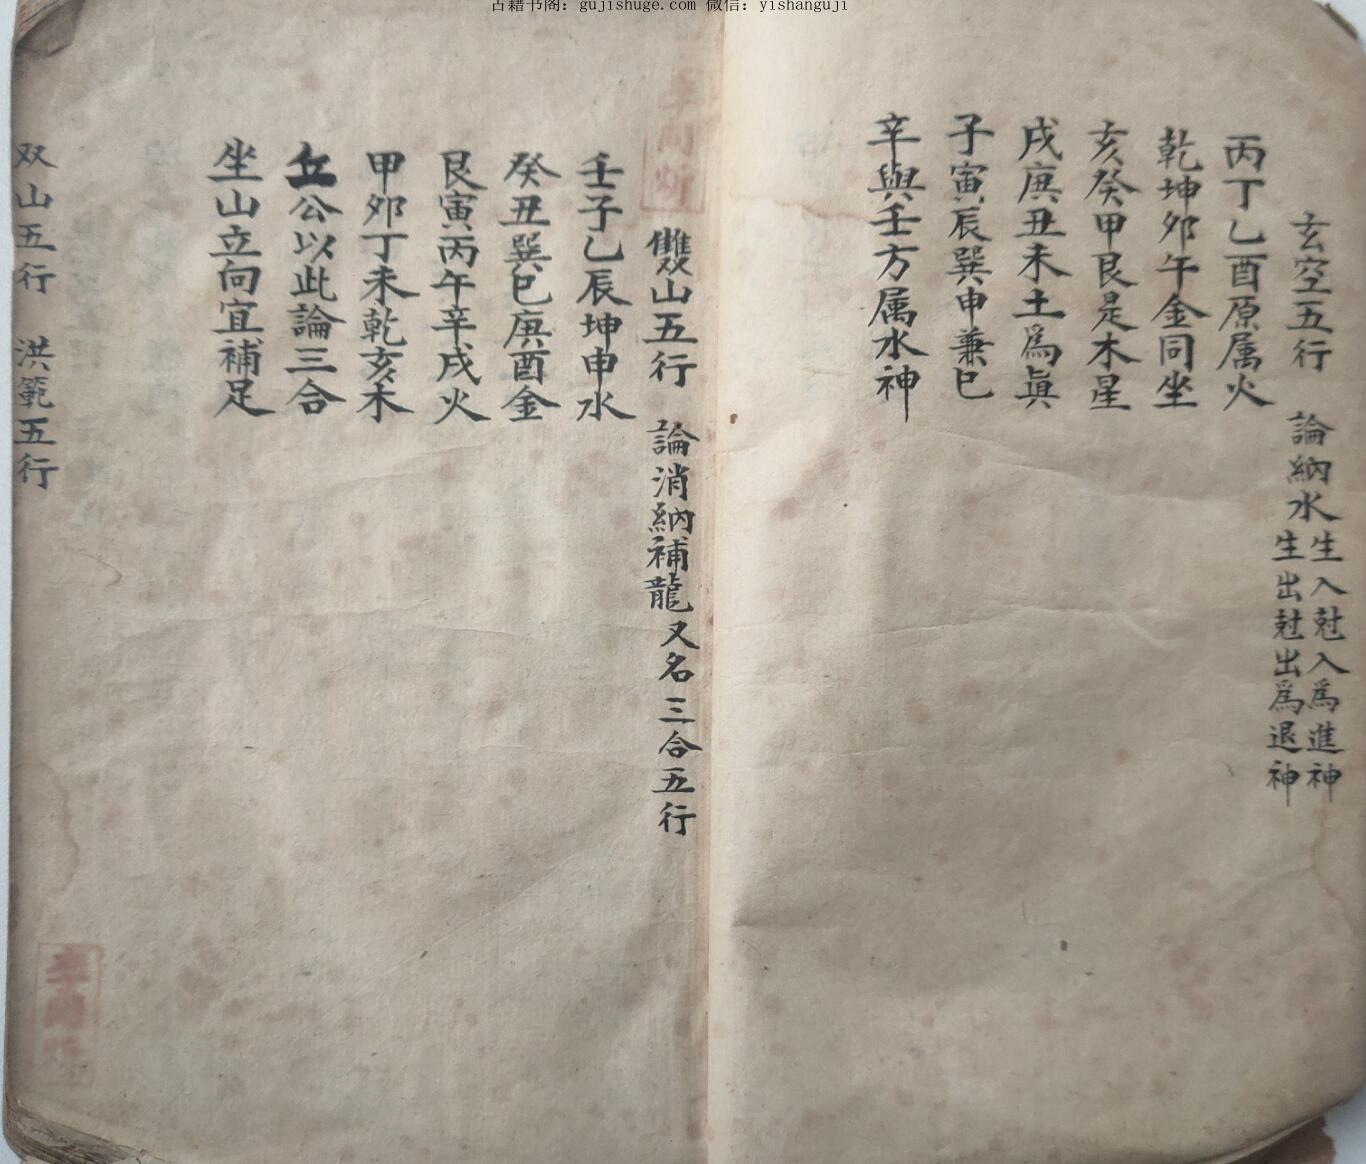 古籍书阁：gujishuge.com 微信：yishanguji
玄空五行　論納水生入尅入爲進神
生出尅出爲退神
丙丁乙酉原属火
乾坤卯午金同坐
亥癸甲艮是木星
戌庚丑未土爲眞
子寅辰巽申兼巳
辛與壬方属水神
雙山五行　論消納補龍又名三合五行
壬子乙辰坤申水
癸丑巽巳庚酉金
艮寅丙午辛戌火
甲卯丁未乾亥木
丘公以此論三合
坐山立向宜補足
双山五行　洪範五行